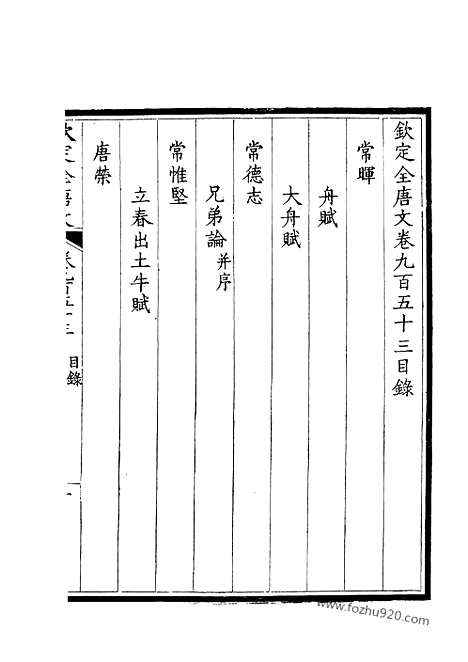 欽定全唐文卷九百五十三目錄
常暉
舟賦
大舟賦
常德志
兄弟論并序
常惟堅
立春出土牛賦
唐榮
欽定全唐文
卷九百五十三
目錄
一
www.fozhu920.com